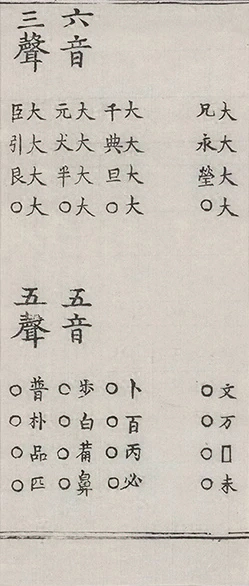 大大大大
兄永瑩○
大大大大
千典旦○
六音
大大大大
元犬半○
三聲
大大大大
臣引艮○
文万□未
○○○○
卜百丙必
○○○○
五音
歩白鼻
○○○○
五聲
普朴品匹
○○○○